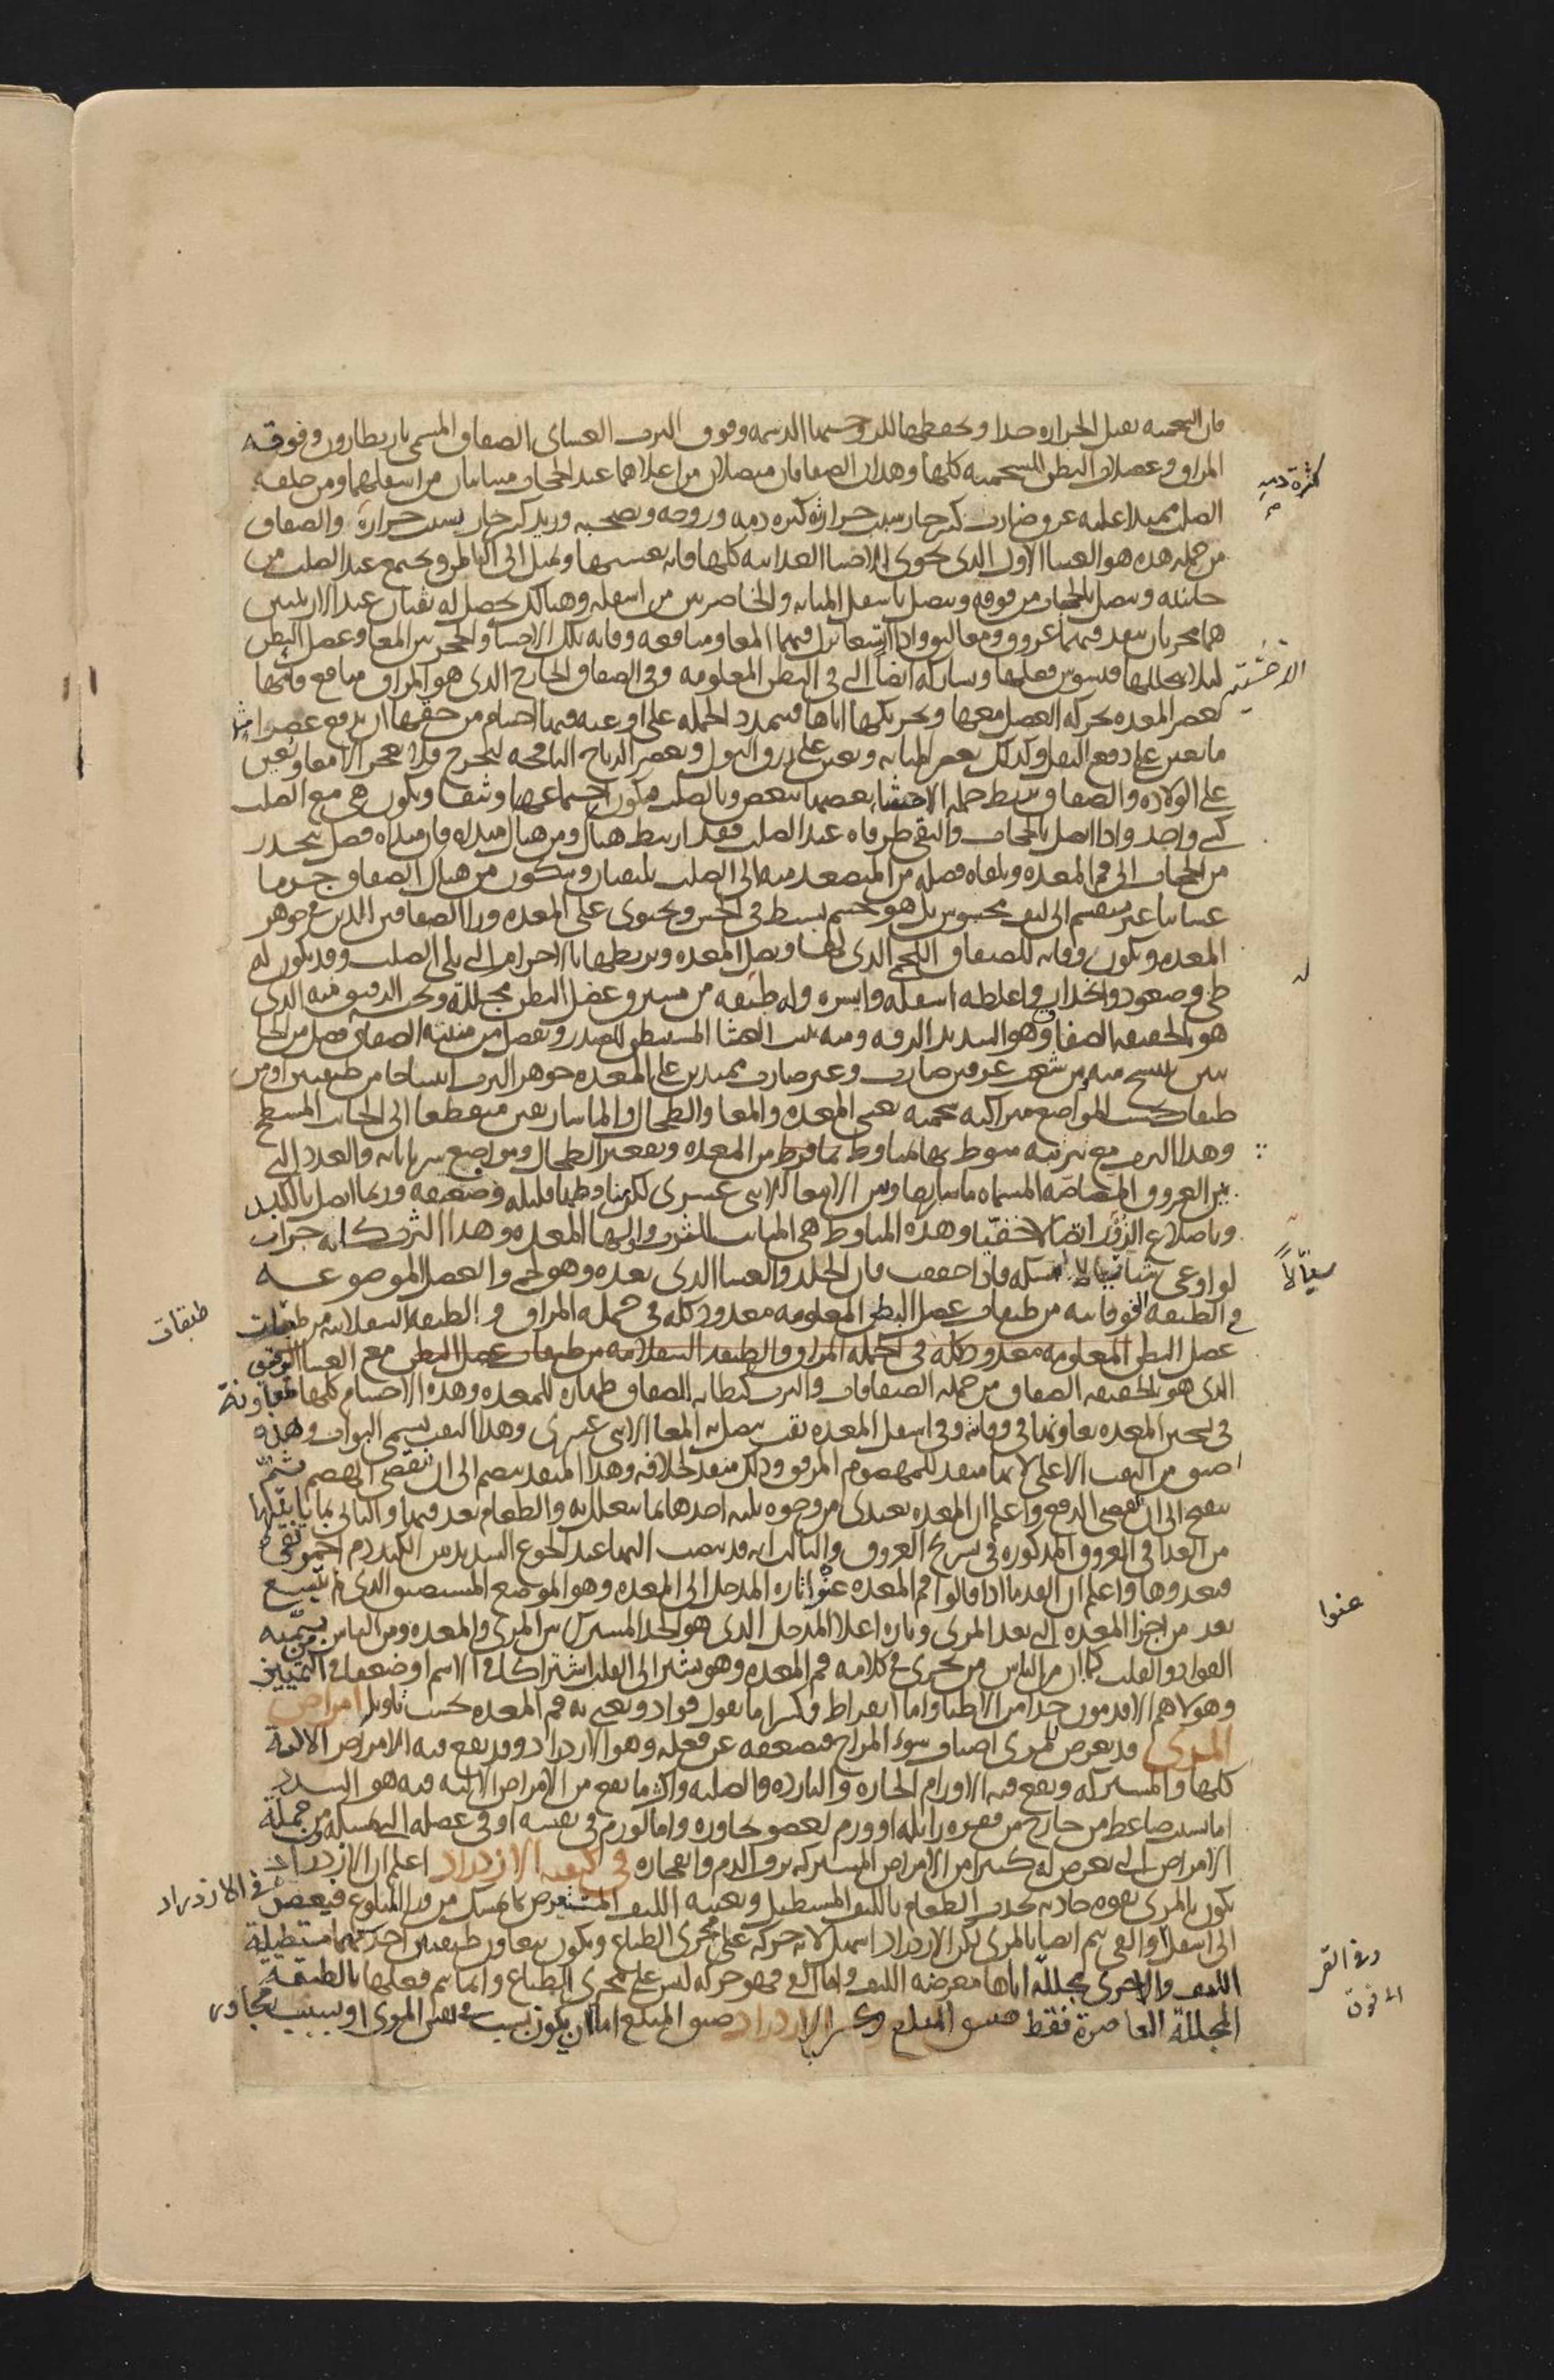 فان الشحمية تقبل الحرارة جدا وتحفظها للزوجتها الدسمة وفوق الثرب الغشاى الصفاق المسمى باريطارون وفوقه
المراق وعضلات البطن الشحمية كلها وهذان الصفاقان متصلان من اعلاهما عند الحجاب متباينان من اسفلهما ومن خلفه
الصلب ممتدا عليه عرق ضارب كبير حار بسبب حرارته كثرة دمه وروحه ويصحبه وريد كبير حار بسبب حرارة والصفاق
كثرة دمه
من جملة هذه هو الغشا الاول الذى يحوى الاحشا الغذائية كلها فانه يغشيها ويميل الى الباطن ويجتمع عند الصلب من
جانبيه ويتصل بالحجاب من فوقه ويتصل باسفل المثانة والخاصرتين من اسفله وهنالك يحصل له ثقبان عند الاربيتين
هما مجريان ينفذ فيهما عروق ومعاليق واذا اتسعا نزل فيهما المعا ومنافعه وقاية تلك الاحشا والحجز بين المعا وعضل البطن
لئلا يتخللها فيشوش فعلها ويشاركه ايضا التى فى البطن المعلومة وفى الصفاق الخارج الذى هو المراق منافع فانها
تعصر المعدة بحركة العضل معها وتحريكها اياها فتمدد الجملة على اوعية فيها اجسام من حقها ان تدفع عصرا
ما يعين على دفع الثفل وكذلك يعصر المثانة ويعين على زرق البول ويعصر الرياح النافخة لتخرج فلا يعجز الامعا ويعين
على الولادة والصفاق يربط جملة الاحشا بعضها ببعض وبالصلب فيكون اجتماعها وثيقا ويكون هى مع الصلب
كشى واحد واذا اتصل بالحجاب والتقى طرفاه عند الصلب فقد ارتبط هناك ومن هناك مبداه فان مبداه فضل ينحدر
من الحجاب الى فم المعدة ويلقاه فضلة من المتصعد منه الى الصلب يلتقيان ويتكون من هناك الصفاق جرما
غشائيا غير منقسم الى ليف محسوس بل هو جسم بسيط فى الحس ويحتوى على المعدة ورا الصفاقين اللذين فى جوهر
المعدة ويكون وقاية للصفاق اللحمى الذى لها ويصل المعدة ويربطها بالاجرام التى تلى الصلب وقد يكون له
طى وصعود وانحدار واغلظه اسفله وايسره وله طبقة من مسترق عضل البطن مجللة وتحت الدقيق منه الذى
هو بالحقيقة الصفاق وهو الشديد الرقة ومنه ينبت الغشا المستبطن للصدر ويفضل من منبته الصفاق فضل من الجا
نبين ينسج منه من شعب عرقين ضارب وغير ضارب ممتدين على المعدة جوهر الثرب انتساجا من طبقتين او من
طبقات بحسب المواضع متراكبة شحمية يغشى المعدة والمعا والطحال والماساريقين منعطفا الى الجانب المسطح
وهذا الثرب مع تربيته منوط بها لمناوط ثما فرط من المعدة وتقعير الطحال ومواضع شرياناته والغدد التى
بين العروق المصاصة المسماة ماساريقا ومن الامعا الاثنى عشرى لكن مناوطها قليلة وضعيفة وربما اتصل بالكبد
وباضلاع الزور اتصالا خفيا وهذه المناوط هى المنابت للثرب واولها المعدة وهذا الثرب كانه جراب
لو اوعى شيئا سيالا لامسكه فاذا حققت فان الجلد والغشا الذى بعده وهو لحمى والعضل الموضوعه
سيالاً
فى الطبقة الفوقانية من طبقات عضل البطن المعلومة معدود كله فى جملة المراق و الطبقة السفلانية من طبقات
طبقات
عضل البطن المعلومه معدود كله فى جملة المراق والطبقة السفلانية من طبقات عضل البطن مع الغشا الرقيق
الذى هو بالحقيقة الصفاق من جملة الصفاقات والثرب كبطانة للصفاق ظهارة للمعدة وهذه الاجسام كلها متعاونة
فى تسخين المعدة تعاونها فى وقاية وفى اسفل المعدة ثقب يتصل به المعا الاثنى عشرى وهذا الثقب يسمى البواب وهذه
اضيق من الثقب الاعلى لانها منفذ للمهضوم المرقق وذلك منفذ لخلافه وهذا المنفذ ينضم الى ان ينقضى الهضم ثم
ينفتح الى ان ينقضى الدفع واعلم ان المعدة يغتذى من وجوه ثلثة احدها بما يتعلل به والطعام يعد فيها والثانى بما ياتيها
من الغذا فى العروق المذكورة فى تشريح العروق والثالث انه قد ينصب اليها عند الجوع الشديد من الكبد دم احمر نقى
فيغذوها واعلم ان القدما اذا قالوا فم المعدة عنوا تارة المدخل الى المعدة وهو الموضع المستضيق الذى لم يتسع
عنوا
بعد من اجزا المعدة التى بعد المرى وتارة اعلا المدخل الذى هو الحد المشترك بين المرى والمعدة ومن الناس من يسميه
الفواد والقلب كما ان من الناس من يجرى فى كلامه فم المعدة وهو يشير الى القلب اشتراكا فى الاسم او ضعفا فى التمييز
وهولا هم الاقدمون جدا من الاطبا واما ابقراط فكثيرا ما يقول فواد ويعنى به فم المعدة بحسب تاويل امراض
المرى قد يعرض للمرى اصناف سوء المزاج فيضعفه عن فعله وهو الازدراد وقد يقع فيه الامراض الالية
كلها والمشتركة ويقع فيه الاورام الحارة والباردة والصلبة واكثر ما يقع من الامراض الالية فيه هو السدد
اما بسبب ضاغط من خارج من فقرة زايلة او ورم لعضو يجاوره واما لورم فى نفسه او فى عضله التى تمسكه ومن جملة
الامراض التى يعرض له كثيرا من الامراض المشتركة نزف الدم وانفجاره فى كيفية الازدراد اعلم ان الازدراد
يكون بالمرى بقوة جاذبة يجذب الطعام بالليف المستطيل ويعينه الليف المستعرض بما يمسك من ورا المبلوع فيعصر فى الازدراد
الى اسفل والقى يتم ايضا بالمرى لكن الازدراد اسهل لانه حركة على مجرى الطباع ويكون بتعاون طبقتين احدهما مستطيلة
الليف والاخرى مجللة اياها معرضة الليف واما القى فهو حركة ليس على مجرى الطباع وانما يتم فعلها بالطبقة
المجللة العاصرة فقط ضيق المبلع وعسر الازدراد ضيق المبلع اما ان يكون بسبب فى نفس المرى او بسبب مجاور